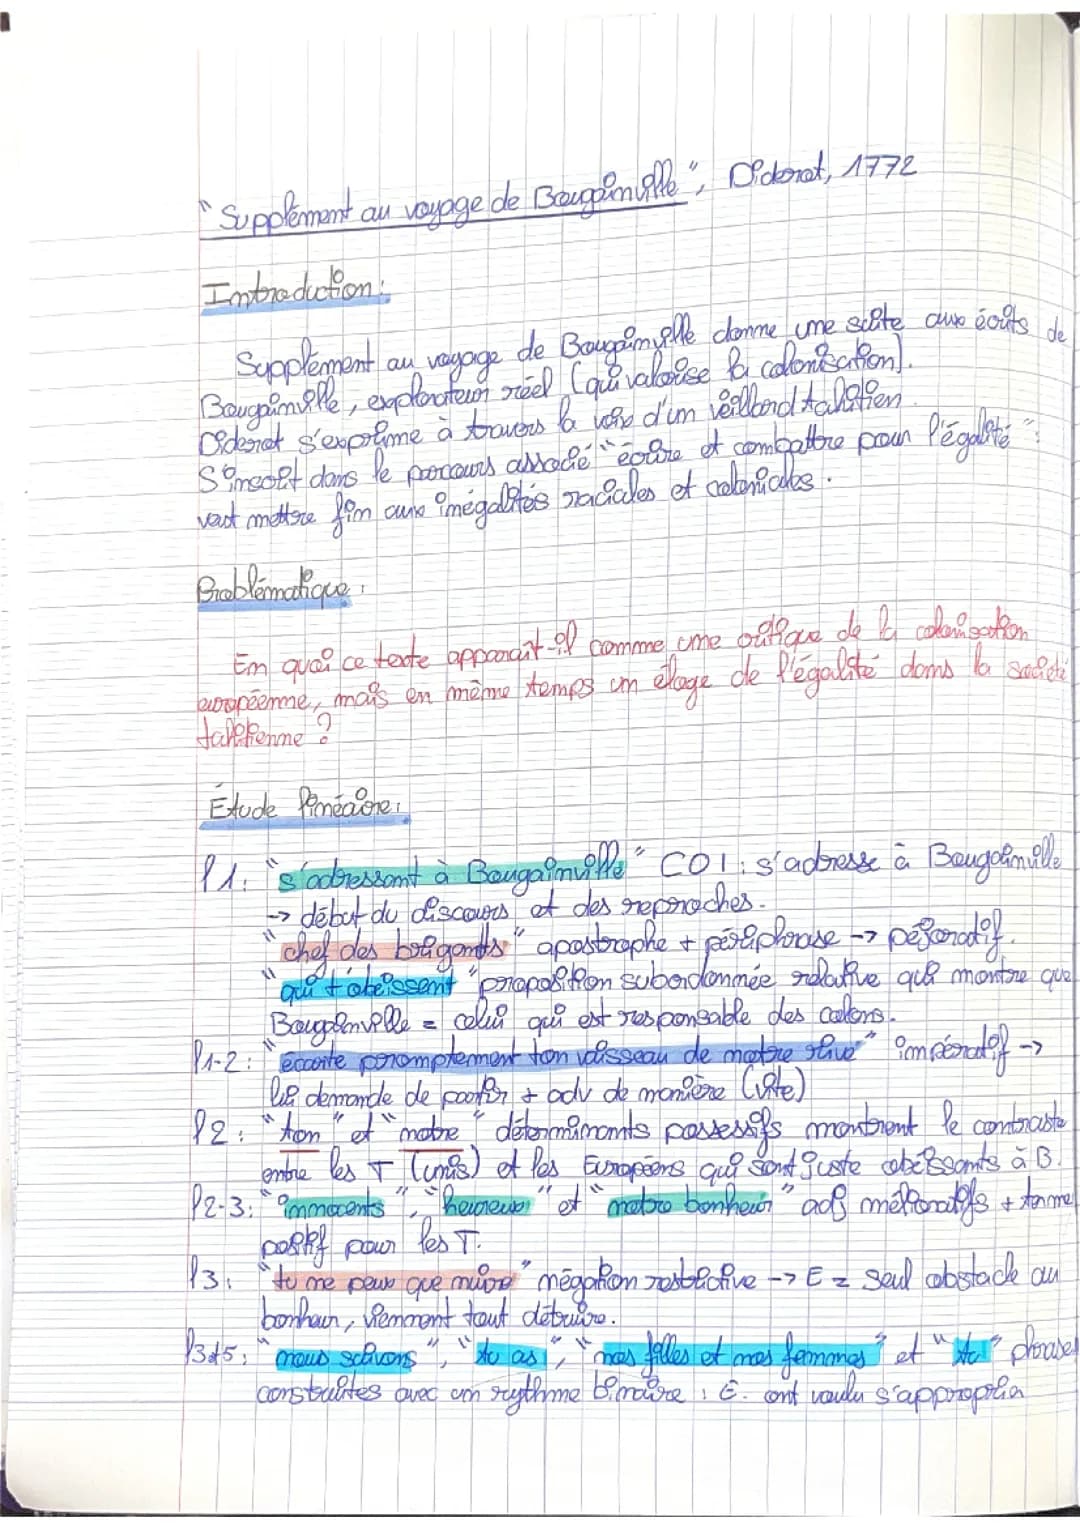 "Supplément au voyage de Bougainville", Diderot, 1772
Introduction :
Supplément au voyage de Bougainville donne une suite aux écrits de
Bougainville, explorateur réel (qui valorise la colonisation).
Diderot s'exprime à travers la voix d'un veillard tahitien.
S'inscrit dans le parcours associé "écrire et combattre pour l'égalité" :
veut mettre fin aux inégalités raciales et coloniales.
Problématique :
En quoi ce texte apparaît-il comme une critique de la colonisation
européenne, mais en même temps un éloge de l'égalité dans la société
tahitienne ?
Étude linéaire :
l1: "s'adressant à Bougainville" COI : s'adresse à Bougainville
-> début du discours et des reproches.
"chef des brigands" apostrophe + périphrase -> péjoratif.
"qui t'obéissent" proposition subordonnée relative qui montre que
Bougainville = celui qui est responsable des colons.
l1-2: "écarte promptement ton vaisseau de notre rive" impératif ->
lui demande de partir + adv de manière (vite)
l2: "ton" et "notre" déterminants possessifs montrent le contraste
entre les T (unis) et les Européens qui sont juste obéissants à B.
l2-3: "innocents", "heureux" et "notre bonheur" adj mélioratifs + terme
positif pour les T.
l3: "tu ne peux que nuire" négation restrictive -> E = seul obstacle au
bonheur, viennent tout détruire.
l3à5: "nous suivons", "tu as", "nos filles et nos femmes" et "tu" phrases
construites avec un rythme binaire : E. ont voulu s'approprier